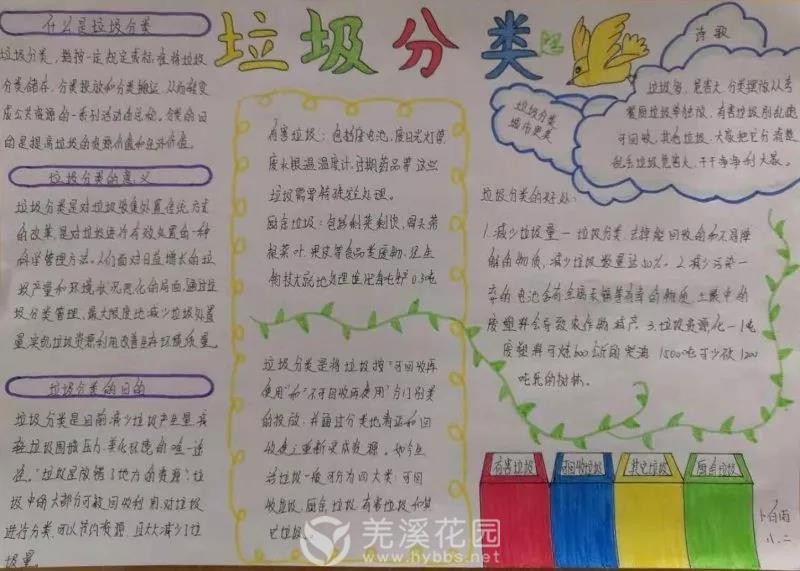 垃圾分类
什么是垃圾分类
垃圾分类,指按一定规定或标准将垃圾
分类储存、分类投放和分类搬运,从而转变
成公共资源的一系列活动的总称。分类的目
的是提高垃圾的资源价值和经济价值。
垃圾分类的意义
垃圾分类是对垃圾收集处置传统方式
的改革,是对垃圾进行有效处置的一种
科学管理方法。人们面对日益增长的垃
圾产量和环境状况恶化的局面,通过垃
圾分类管理,最大限度地减少垃圾处置
量,实现垃圾资源利用改善生存环境质量。
垃圾分类的目的
垃圾分类是目前减少垃圾产生量,减
轻垃圾围城压力,美化环境的唯一途
径。"垃圾是放错了地方的资源",垃
圾中的大部分可被回收利用,对垃圾
进行分类,可以节约资源,且大大减少了垃
圾量。
有害垃圾:包括废电池,废日光灯管,
废水银温度计,过期药品等,这些
垃圾需要特殊处理。
厨余垃圾:包括剩菜剩饭,骨头,菜
根菜叶,果皮等食品类废物,经生
物技术就地处理堆肥每吨产0.3吨
垃圾分类是将垃圾按"可回收再
使用"和"不可回收再使用"为门别类
的投放,并通过分类地清运和回
收使之重新变成资源。如今生
活垃圾一般可分为四大类:可回
收垃圾,厨余垃圾,有害垃圾和其
它垃圾。
诗歌
垃圾多,危害大,分类摆放从
餐厨垃圾单独放,有害垃圾别乱跑
可回收,其他垃圾,大家把它分清楚
乱丢垃圾危害大,干干净净利大家。
垃圾分类
城市更美
垃圾分类的好处:
1.减少垃圾量—垃圾分类,去掉能回收的和不易降
解的物质,减少垃圾数量达60%。2.减少污染—
弃的电池含有金属汞镉等有毒的物质,土壤中的
废塑料会导致农作物减产。3.垃圾资源化—1吨
废塑料可炼600公斤的柴油,1500吨可少砍1200
吨纸的树林。
有害垃圾
可回收垃圾
其它垃圾
厨余垃圾
卜白雨
八.二
羌溪花园
www.hybbs.net